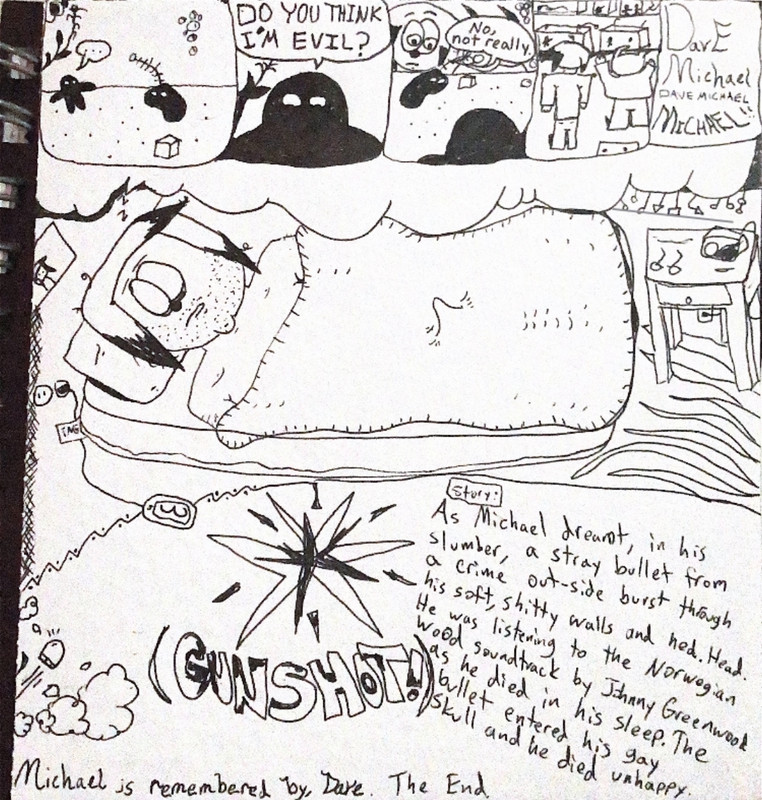 ...
DO YOU THINK
I'M EVIL?
No,
not really.
DavE
Michael
DAVE MICHAEL
MICHAEL!!
Story:
As Michael dreamt, in his
slumber, a stray bullet from
a crime out-side burst through
his soft, shitty walls and hed. Head.
He was listening to the Norwegian
Wood soundtrack by Johnny Greenwood
as he died in his sleep. The
bullet entered his gay
skull and he died unhappy.
(GUNSHOT!)
Michael is remembered by, Dave. The End